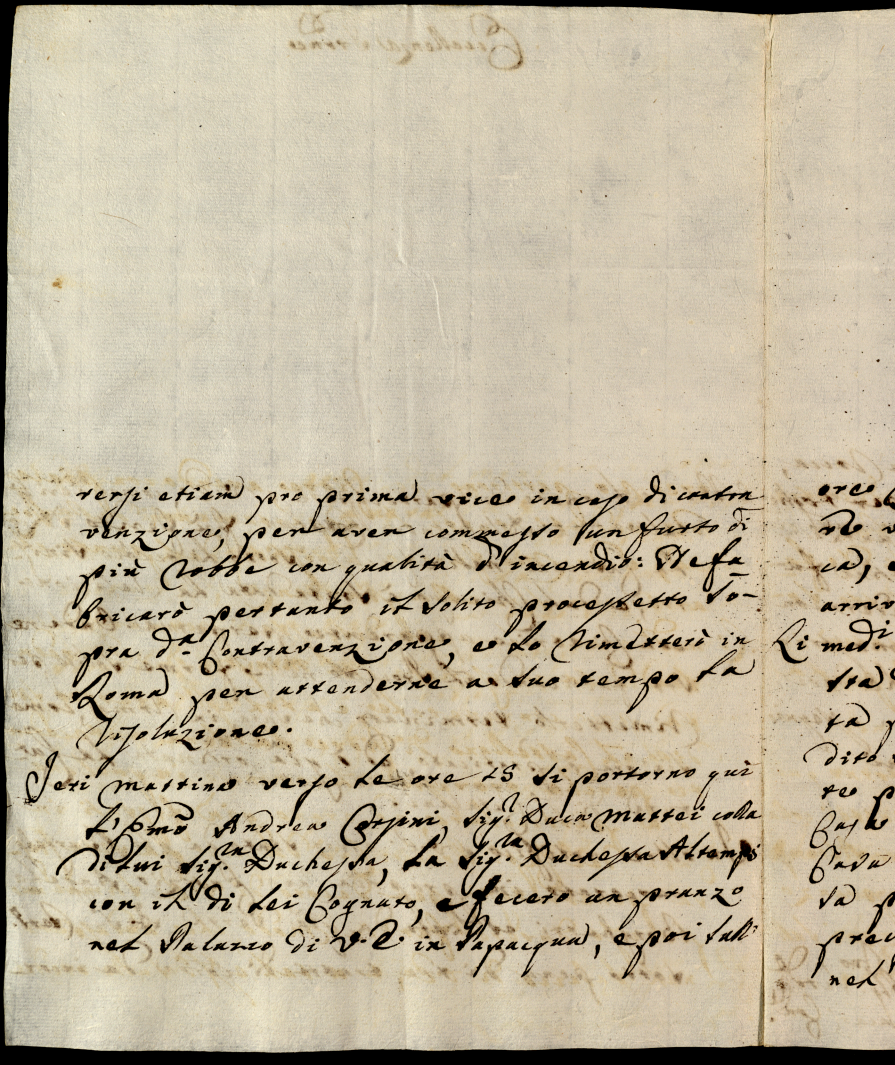 rersi etiam pro prima vice in caso di contra
venzione, per aver commesso un furto di
più robbe con qualità d'incendio: Ne fa
bricarò pertanto il solito processetto so-
pra d.a Contravenzione, e lo rimetterò in
Roma per attenderne a suo tempo la
risoluzione.
Jeri mattina verso le ore 15 si portorno qui
l'Emo Andrea Corsini, Sig.r Duca Mattei colla
di lui Sig.ra Duchessa, la Sig.ra Duchessa Altemps
con il di lei Cognato, e fecero un pranzo
nel Palazzo di V. E. in Papacqua, e poi sull'
ore
ca, e
arriv
Li med.i
sta
ta p
dito
te p
Casa
Cava
va p
prec
nel